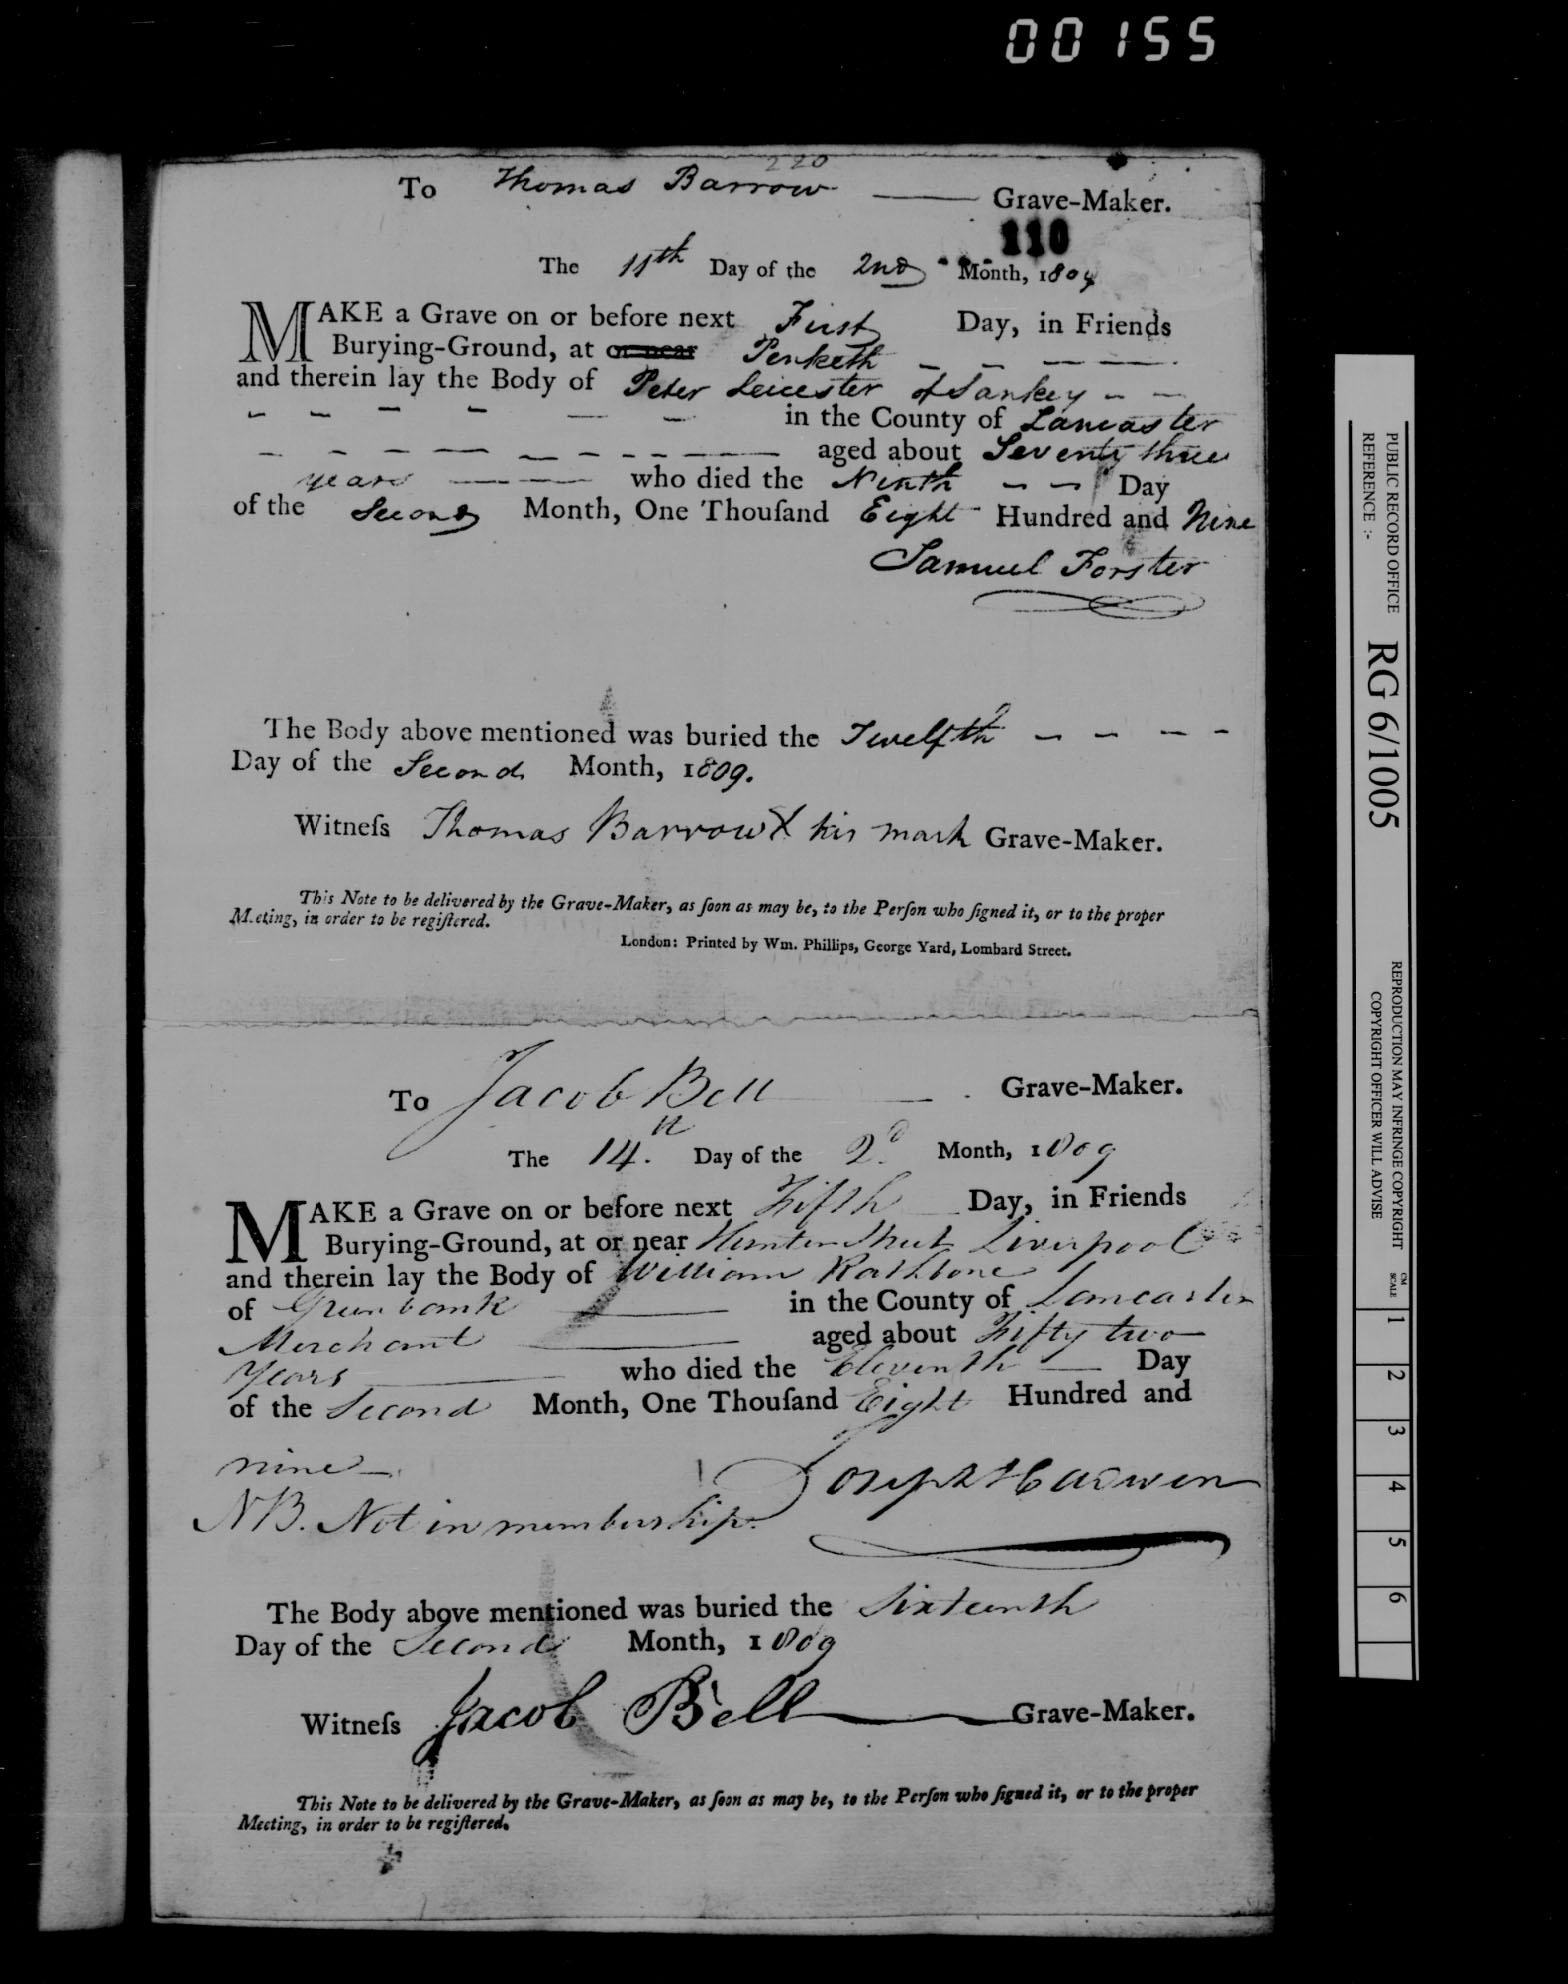 00155
220
To Thomas Barrow Grave-Maker.
110
The 11th Day of the 2nd Month, 1809
MAKE a Grave on or before next First Day, in Friends
Burying-Ground, at or near Penketh
and therein lay the Body of Peter Leicester of Sankey
in the County of Lancaster
aged about Seventy three
years who died the Ninth Day
of the Second Month, One Thouſand Eight Hundred and Nine
Samuel Forster
The Body above mentioned was buried the Twelfth
Day of the Second Month, 1809.
Witneſs Thomas Barrow X his mark Grave-Maker.
This Note to be delivered by the Grave-Maker, as ſoon as may be, to the Perſon who ſigned it, or to the proper
Meeting, in order to be regiſtered.
London: Printed by Wm. Phillips, George Yard, Lombard Street.
To Jacob Bell Grave-Maker.
The 14.th Day of the 2.d Month, 1809
MAKE a Grave on or before next Fifth Day, in Friends
Burying-Ground, at or near Hunter Street Liverpool
and therein lay the Body of William Rathbone
of Greenbank in the County of Lancaster
Merchant aged about Fifty two
Years who died the Eleventh Day
of the Second Month, One Thouſand Eight Hundred and
nine
Joseph Hadwen
NB. Not in membership.
The Body above mentioned was buried the Sixteenth
Day of the Second Month, 1809
Witneſs Jacob Bell Grave-Maker.
This Note to be delivered by the Grave-Maker, as ſoon as may be, to the Perſon who ſigned it, or to the proper
Meeting, in order to be regiſtered.
PUBLIC RECORD OFFICE
REFERENCE :-
RG 6/1005
REPRODUCTION MAY INFRINGE COPYRIGHT
COPYRIGHT OFFICER WILL ADVISE
CM
SCALE
1
2
3
4
5
6